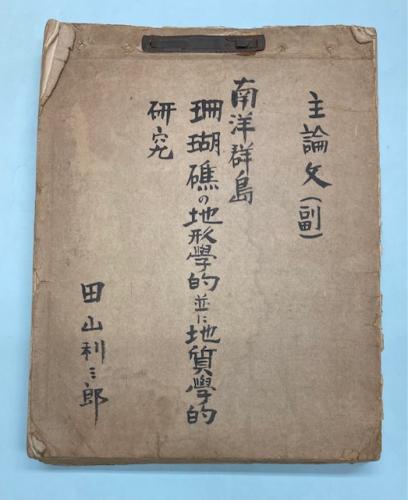 主論文(副)
南洋群島
珊瑚礁の地形學的並に地質學的
研究
田山利三郎